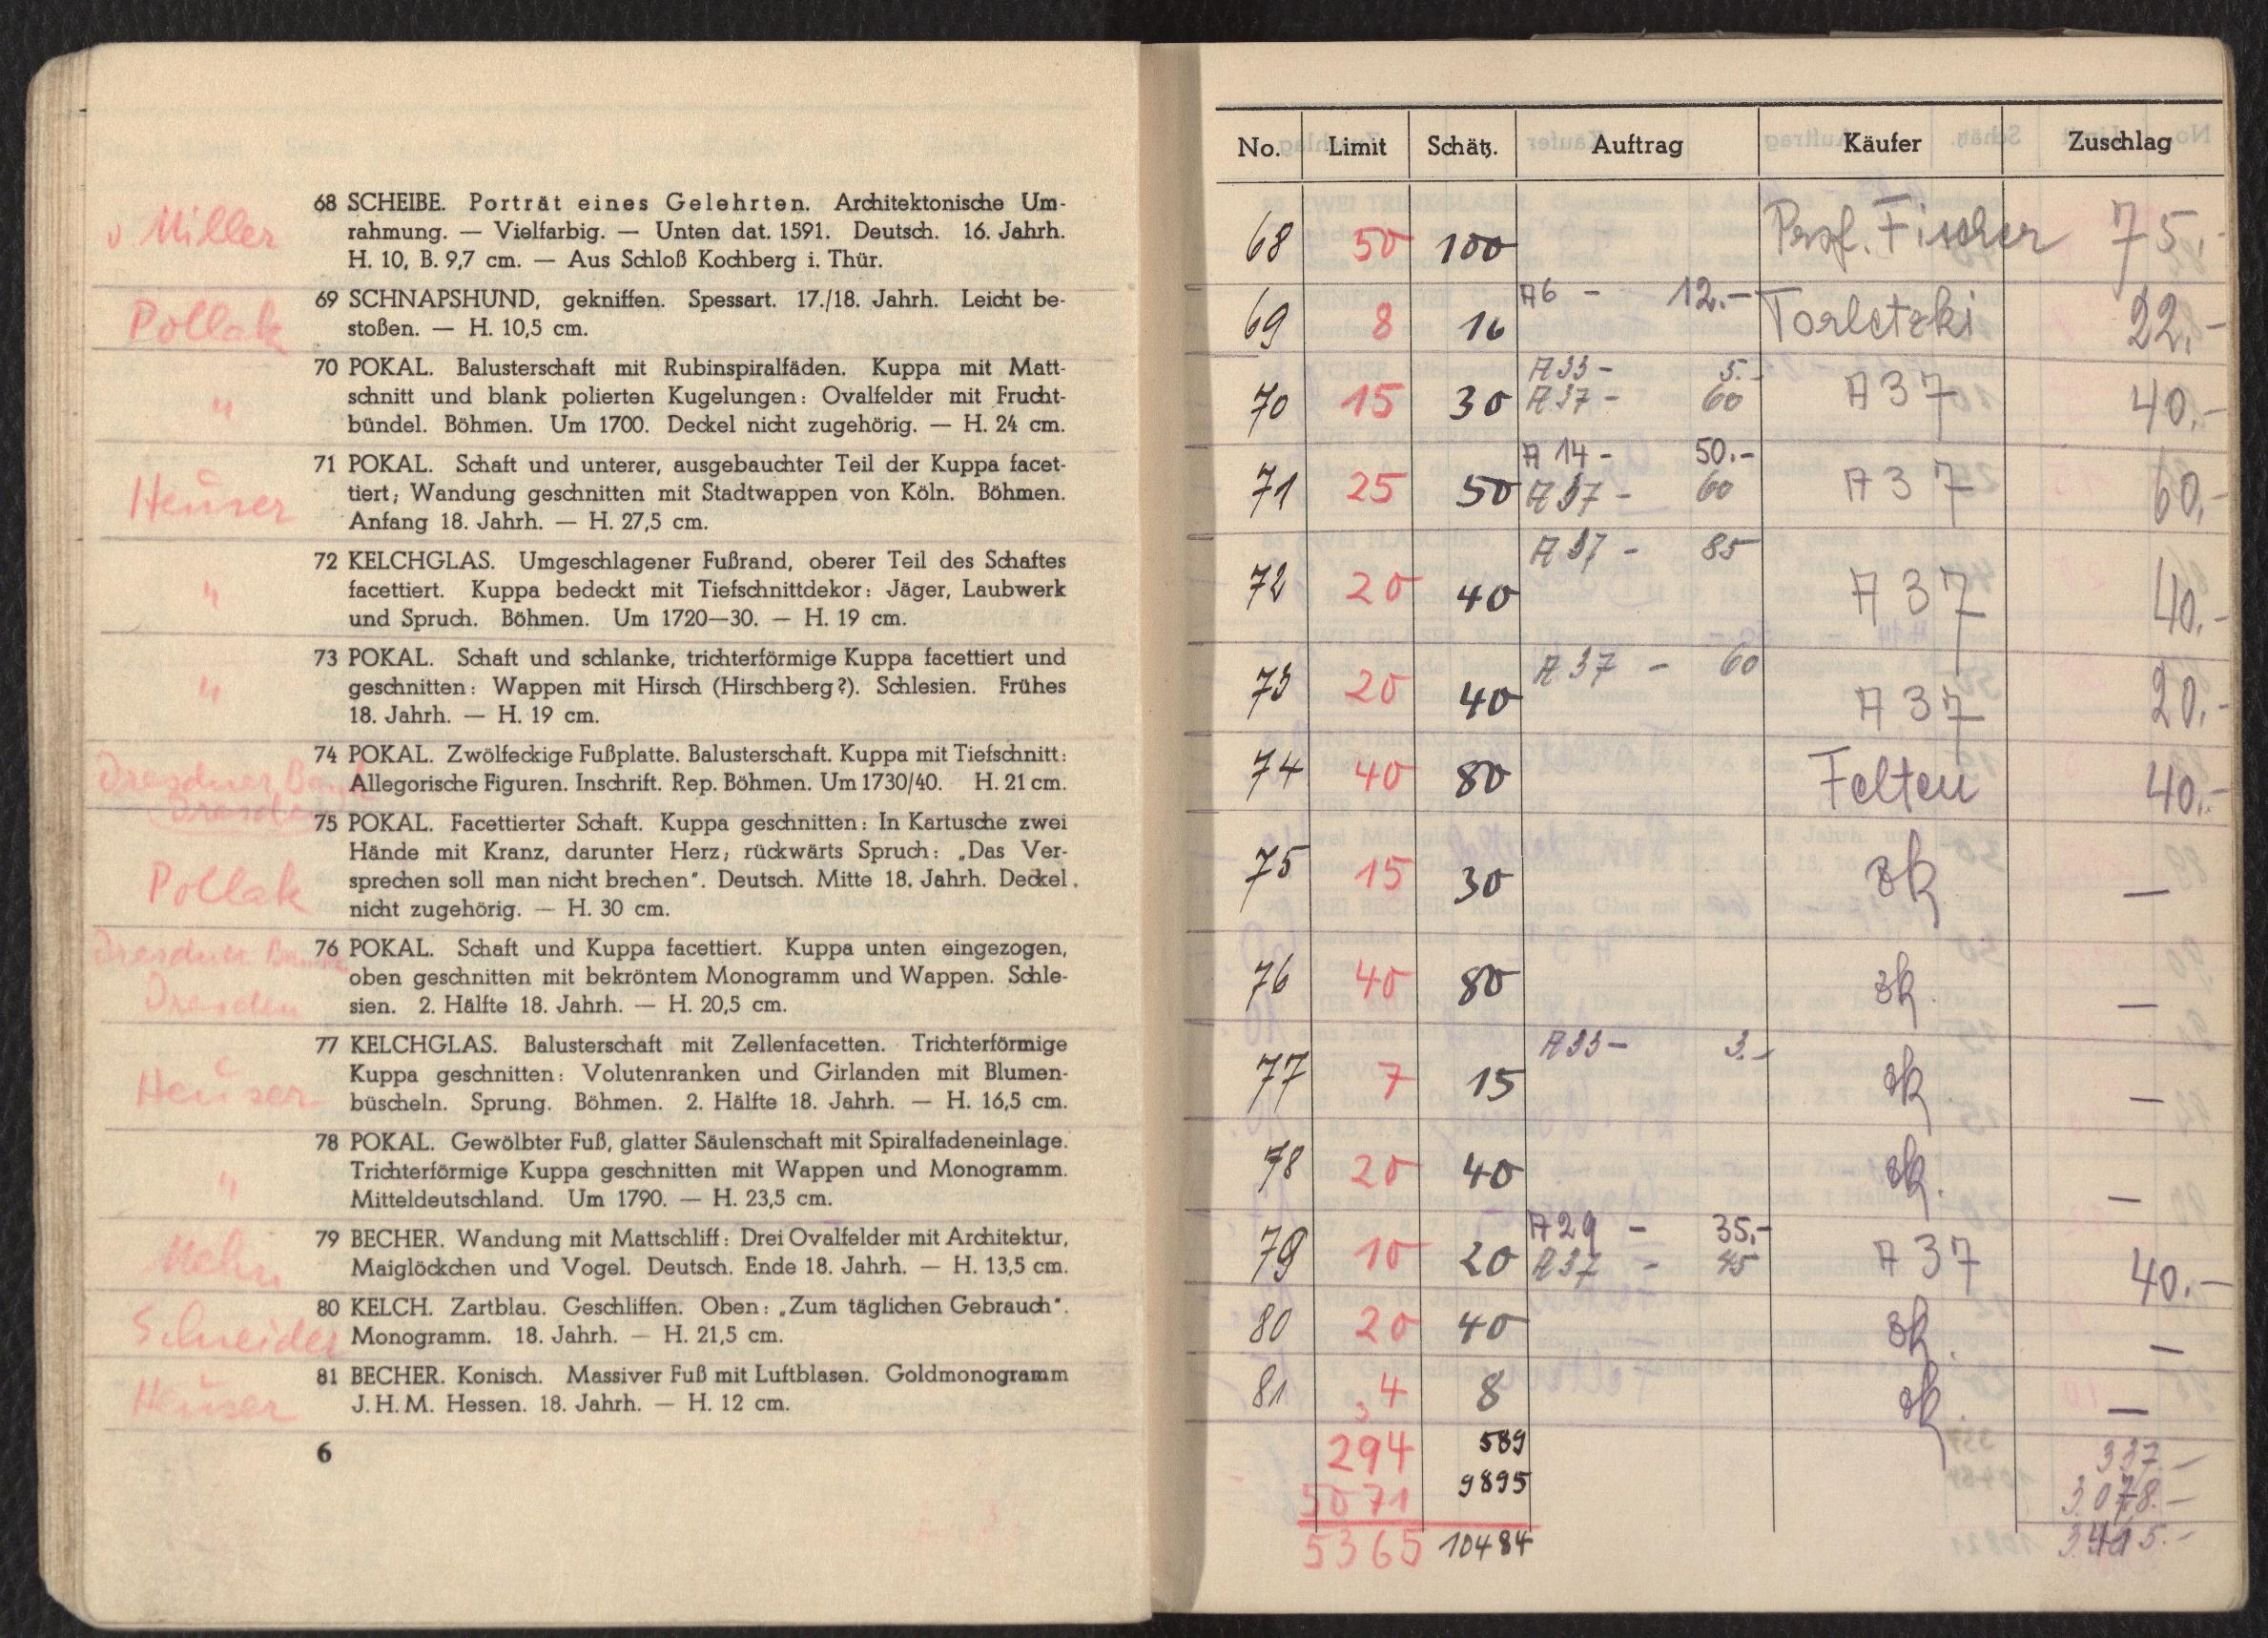 v Miller
68 SCHEIBE. Porträt eines Gelehrten. Architektonische Um-
rahmung. — Vielfarbig. — Unten dat. 1591. Deutsch. 16. Jahrh.
H. 10, B. 9,7 cm. — Aus Schloß Kochberg i. Thür.
Pollak
69 SCHNAPSHUND, gekniffen. Spessart. 17./18. Jahrh. Leicht be-
stoßen. — H. 10,5 cm.
"
70 POKAL. Balusterschaft mit Rubinspiralfäden. Kuppa mit Matt-
schnitt und blank polierten Kugelungen: Ovalfelder mit Frucht-
bündel. Böhmen. Um 1700. Deckel nicht zugehörig. — H. 24 cm.
Heuser
71 POKAL. Schaft und unterer, ausgebauchter Teil der Kuppa facet-
tiert; Wandung geschnitten mit Stadtwappen von Köln. Böhmen.
Anfang 18. Jahrh. — H. 27,5 cm.
"
72 KELCHGLAS. Umgeschlagener Fußrand, oberer Teil des Schaftes
facettiert. Kuppa bedeckt mit Tiefschnittdekor: Jäger, Laubwerk
und Spruch. Böhmen. Um 1720—30. — H. 19 cm.
"
73 POKAL. Schaft und schlanke, trichterförmige Kuppa facettiert und
geschnitten: Wappen mit Hirsch (Hirschberg?). Schlesien. Frühes
18. Jahrh. — H. 19 cm.
Dresdner Bank
Dresden
74 POKAL. Zwölfeckige Fußplatte. Balusterschaft. Kuppa mit Tiefschnitt:
Allegorische Figuren. Inschrift. Rep. Böhmen. Um 1730/40. H. 21 cm.
Pollak
75 POKAL. Facettierter Schaft. Kuppa geschnitten: In Kartusche zwei
Hände mit Kranz, darunter Herz; rückwärts Spruch: „Das Ver-
sprechen soll man nicht brechen". Deutsch. Mitte 18. Jahrh. Deckel
nicht zugehörig. — H. 30 cm.
Dresdner Bank
Dresden
76 POKAL. Schaft und Kuppa facettiert. Kuppa unten eingezogen,
oben geschnitten mit bekröntem Monogramm und Wappen. Schle-
sien. 2. Hälfte 18. Jahrh. — H. 20,5 cm.
Heuser
77 KELCHGLAS. Balusterschaft mit Zellenfacetten. Trichterförmige
Kuppa geschnitten: Volutenranken und Girlanden mit Blumen-
büscheln. Sprung. Böhmen. 2. Hälfte 18. Jahrh. — H. 16,5 cm.
"
78 POKAL. Gewölbter Fuß, glatter Säulenschaft mit Spiralfadeneinlage.
Trichterförmige Kuppa geschnitten mit Wappen und Monogramm.
Mitteldeutschland. Um 1790. — H. 23,5 cm.
79 BECHER. Wandung mit Mattschliff: Drei Ovalfelder mit Architektur,
Maiglöckchen und Vogel. Deutsch. Ende 18. Jahrh. — H. 13,5 cm.
Schneider
80 KELCH. Zartblau. Geschliffen. Oben: „Zum täglichen Gebrauch".
Monogramm. 18. Jahrh. — H. 21,5 cm.
Heuser
81 BECHER. Konisch. Massiver Fuß mit Luftblasen. Goldmonogramm
J. H. M. Hessen. 18. Jahrh. — H. 12 cm.
6
No. Limit Schätz. Auftrag Käufer Zuschlag
68 50 100 Prof. Fischer 75.-
69 8 16 A6 - 12.- Torletzki 22.-
A33 - 5.-
70 15 30 A37 - 60 A37 40.-
A14 - 50.-
71 25 50 A37 - 60 A37 60.-
72 20 40 A37 - 85 A37 40.-
73 20 40 A37 - 60 A37 20.-
74 40 80 Felten 40.-
75 15 30 zk —
76 40 80 zk. —
77 7 15 A33 - 3.- zk. —
78 20 40 zk. —
A29 - 35.-
79 10 20 A37 - 45 A37 40.-
80 20 40 zk. —
81 4 8 zk. —
294 589 337.-
5071 9895 3.078.-
5365 10484 3.415.-